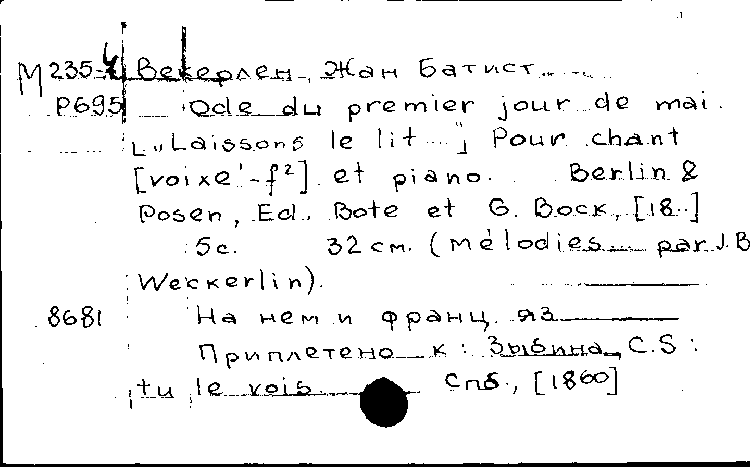 М 235-4 Векерлен, Жан Батист
Р695 Ode du premier jour de mai.
[„Laissons le lit..."] Pour chant
[voix e'-f²] et piano. Berlin &
Posen, Ed. Bote et G. Bock, [18..]
5с. 32 см. (mélodies... par J.B
Weckerlin).
8681 На нем и франц. яз
Приплетено к: Зыбина, C.S:
tu le vois. Спб., [1860]